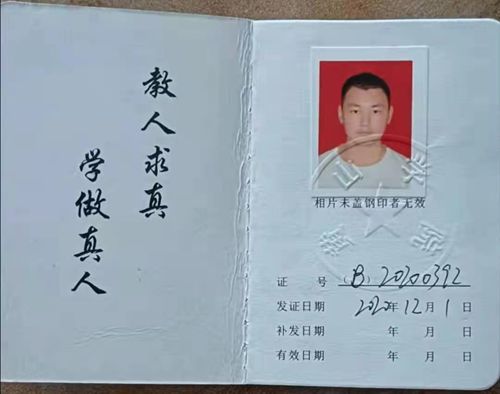 教人求真
学做真人
相片未盖钢印者无效
证 号 (B) 20200392
发证日期 2020年12月1日
补发日期 年 月 日
有效日期 年 月 日